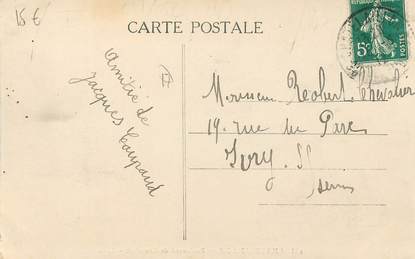 15€
CARTE POSTALE
Amitié de
Jacques
II
Monsieur Robert Chevalier
19. rue du Parc
Ivry. S/S
Seine
5c
POSTES